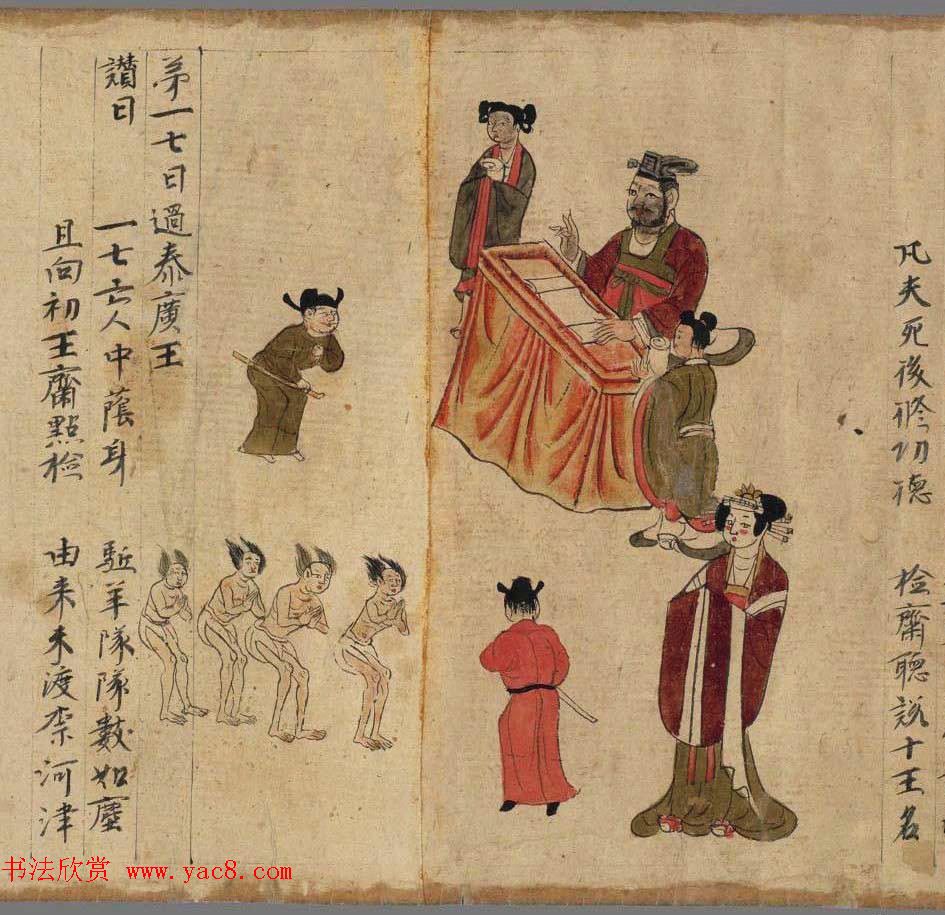 凡夫死後修功德 檢齋聽說十王名
弟一七日過秦廣王
讃曰
一七亡人中蔭身 駈羊隊隊數如塵
且向初王齋點檢 由来未渡柰河津
书法欣赏 www.yac8.com